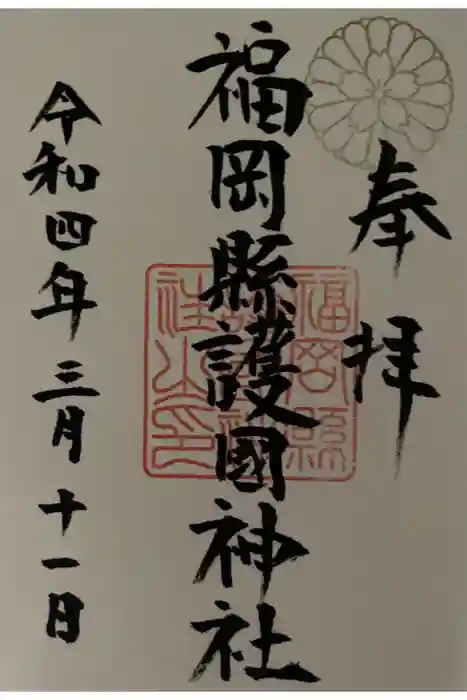 奉拝
福岡縣護國神社
令和四年三月十一日
福岡縣